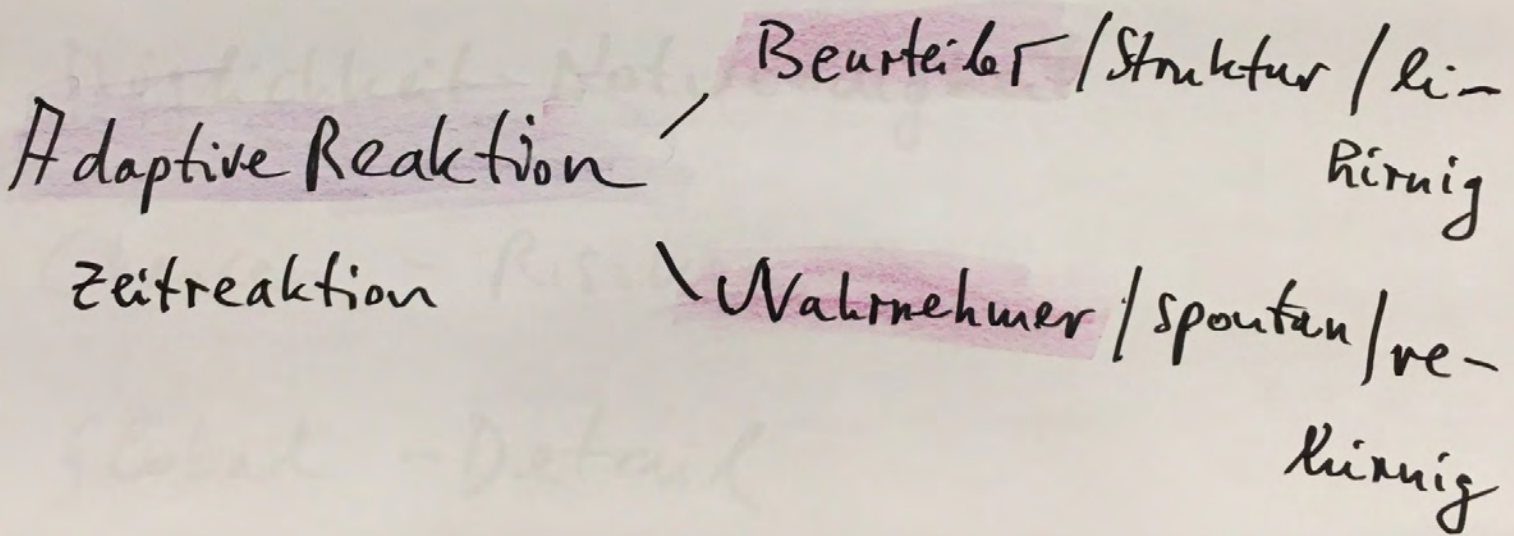 Adaptive Reaktion
Zeitreaktion
Beurteiler / Struktur / li-
hirnig
Wahrnehmer / spontan / re-
hirnig
Global - Detail